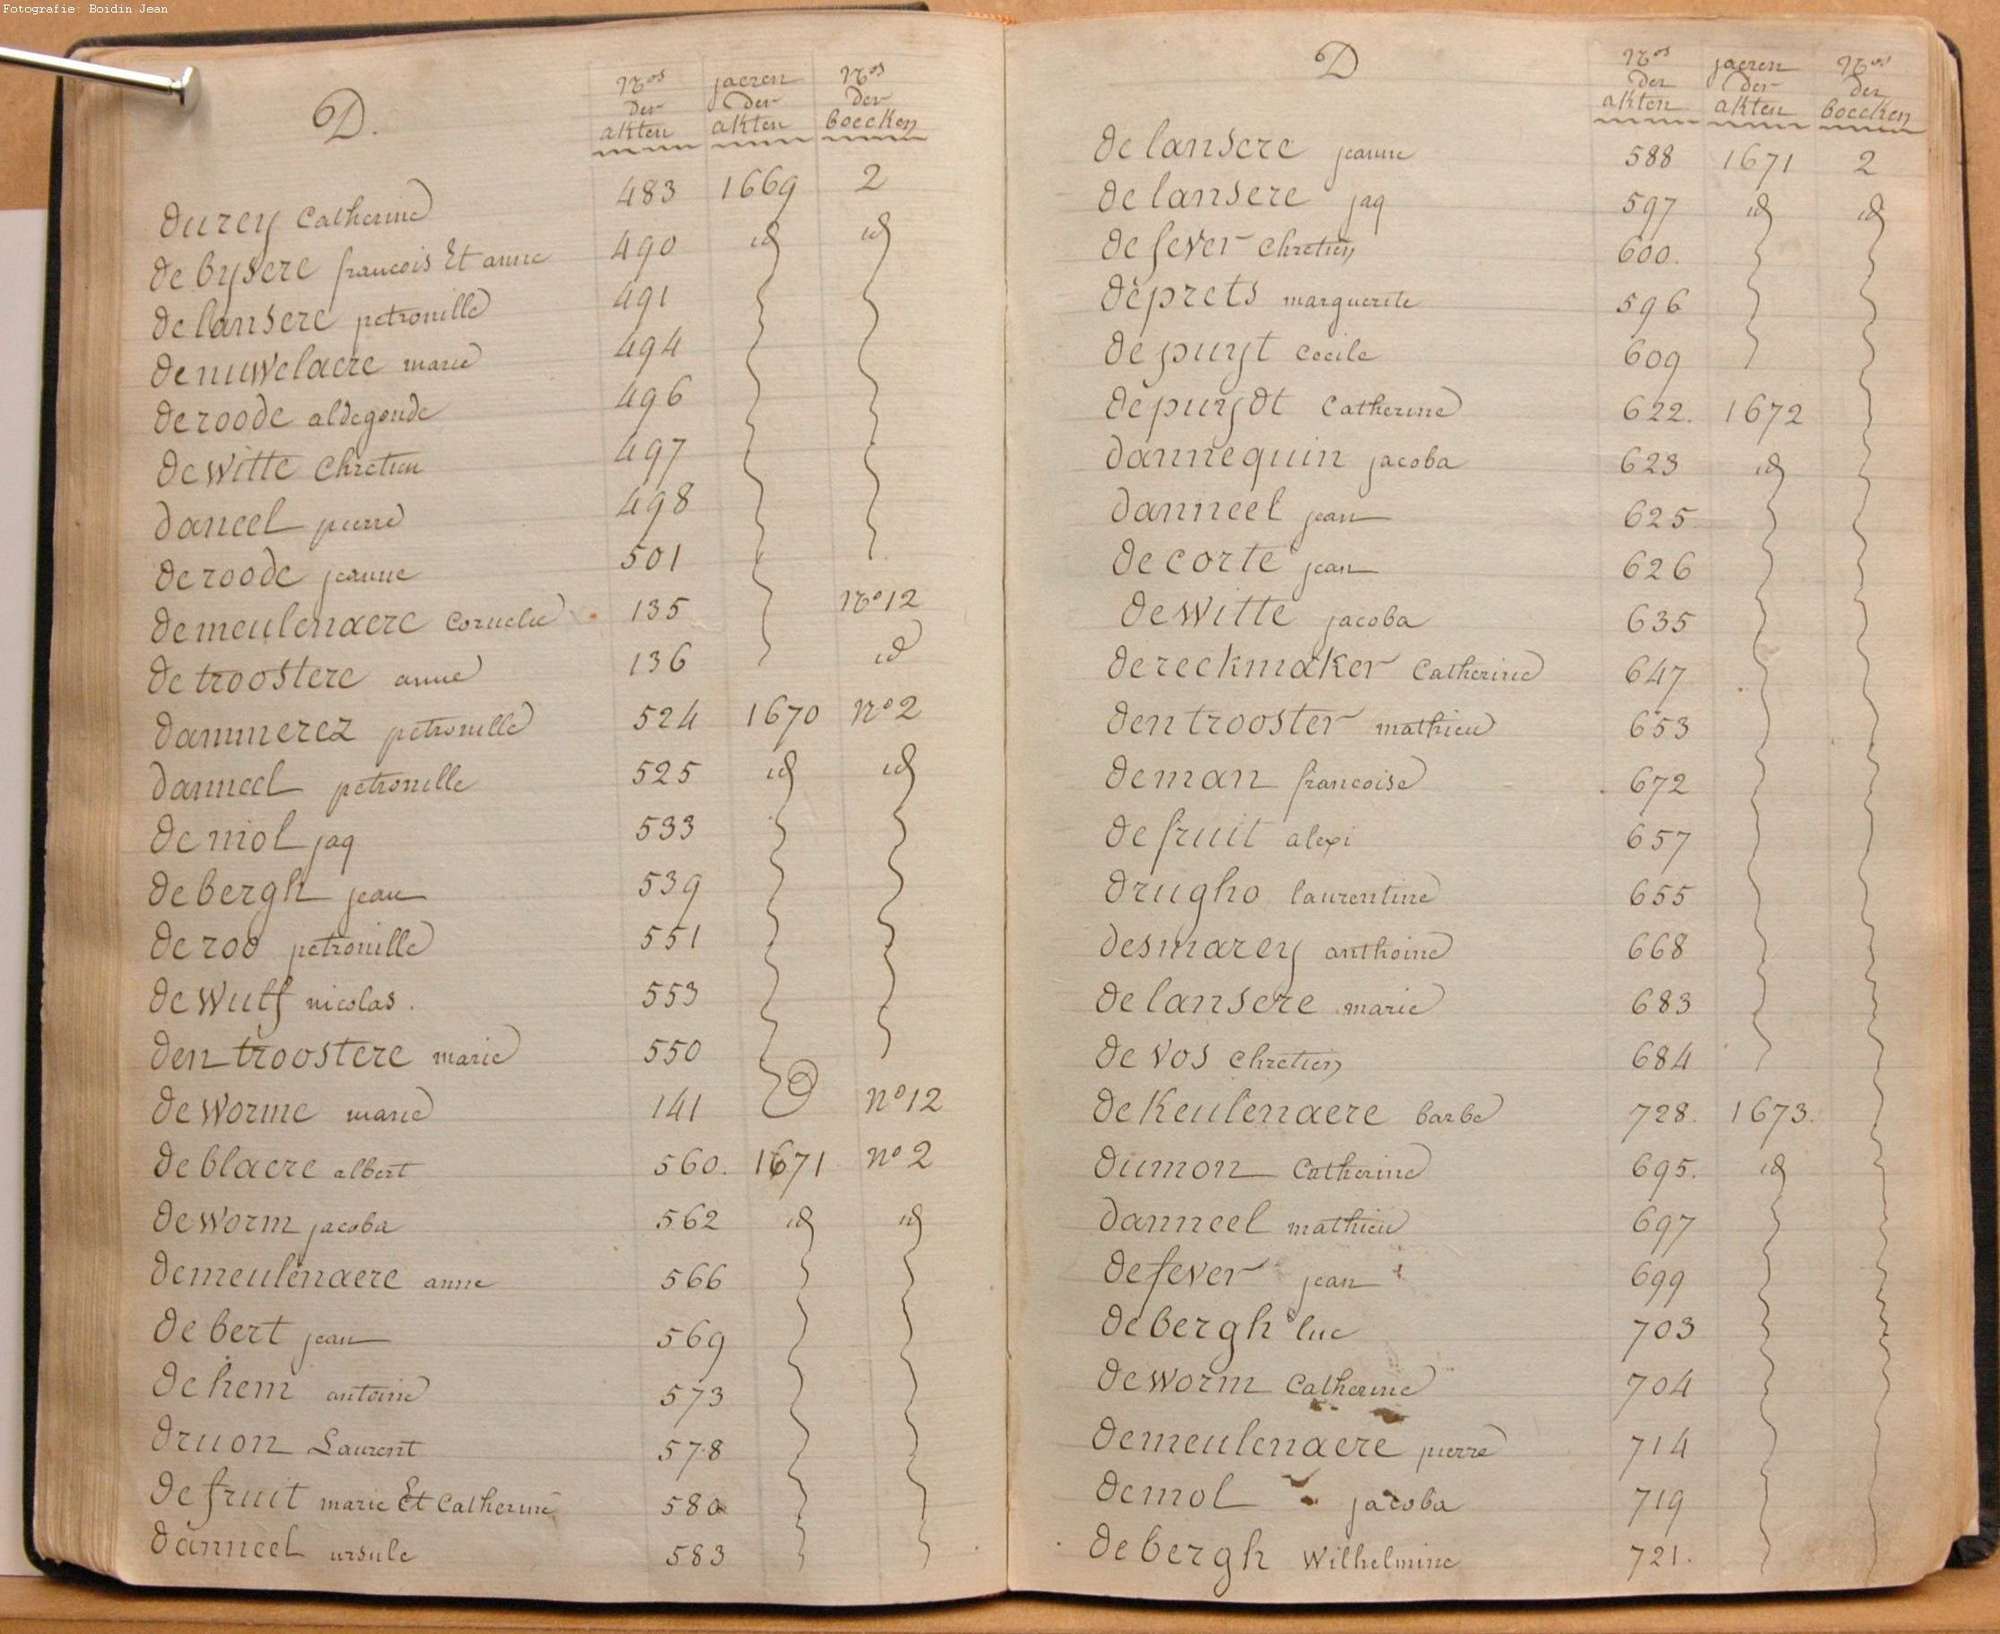 Fotografie: Boidin Jean
D.
Nos der akten
jaeren der akten
Nos der boecken
durey Catherine 483 1669 2
de bysere francois Et anne 490 id id
de lansere petronille 491
de nuwelaere marie 494
de roode aldegonde 496
de witte Chretien 497
daneel pierre 498
de roode jeanne 501
de meulenaere Cornelie 135 No 12
de troostere anne 136 id
dammerez petronille 524 1670 no 2
danneel petronille 525 id id
de mol jaq 533
de bergh jean 539
de roo petronille 551
de wulf nicolas. 553
den troostere marie 550
de worme marie 141 no 12
de blaere albert 560. 1671 no 2
de worm jacoba 562 id id
demeulenaere anne 566
de bert jean 569
de hem antoine 573
druon Laurent 578
de fruit marie Et Catherine 580
danneel ursule 583
D
Nos der akten
jaeren der akten
Nos der boecken
de lansere jeanne 588 1671 2
de lansere jaq 597 id id
de fever chretien 600.
deprets marguerite 596
de puyt Cecile 609
de puydt Catherine 622. 1672
dannequin jacoba 623 id
danneel jean 625
de corte jean 626
de witte jacoba 635
de reckmaker Catherine 647
den trooster mathieu 653
deman francoise 672
de fruit alexi 657
drugho laurentine 655
desmarey anthoine 668
de lansere marie 683
de vos chretien 684
de Keulenaere barbe 728. 1673.
dumon Catherine 695. id
danneel mathieu 697
de fever jean 699
de bergh luc 703
de worm Catherine 704
demeulenaere pierre 714
demol jacoba 719
de bergh Wilhelmine 721.